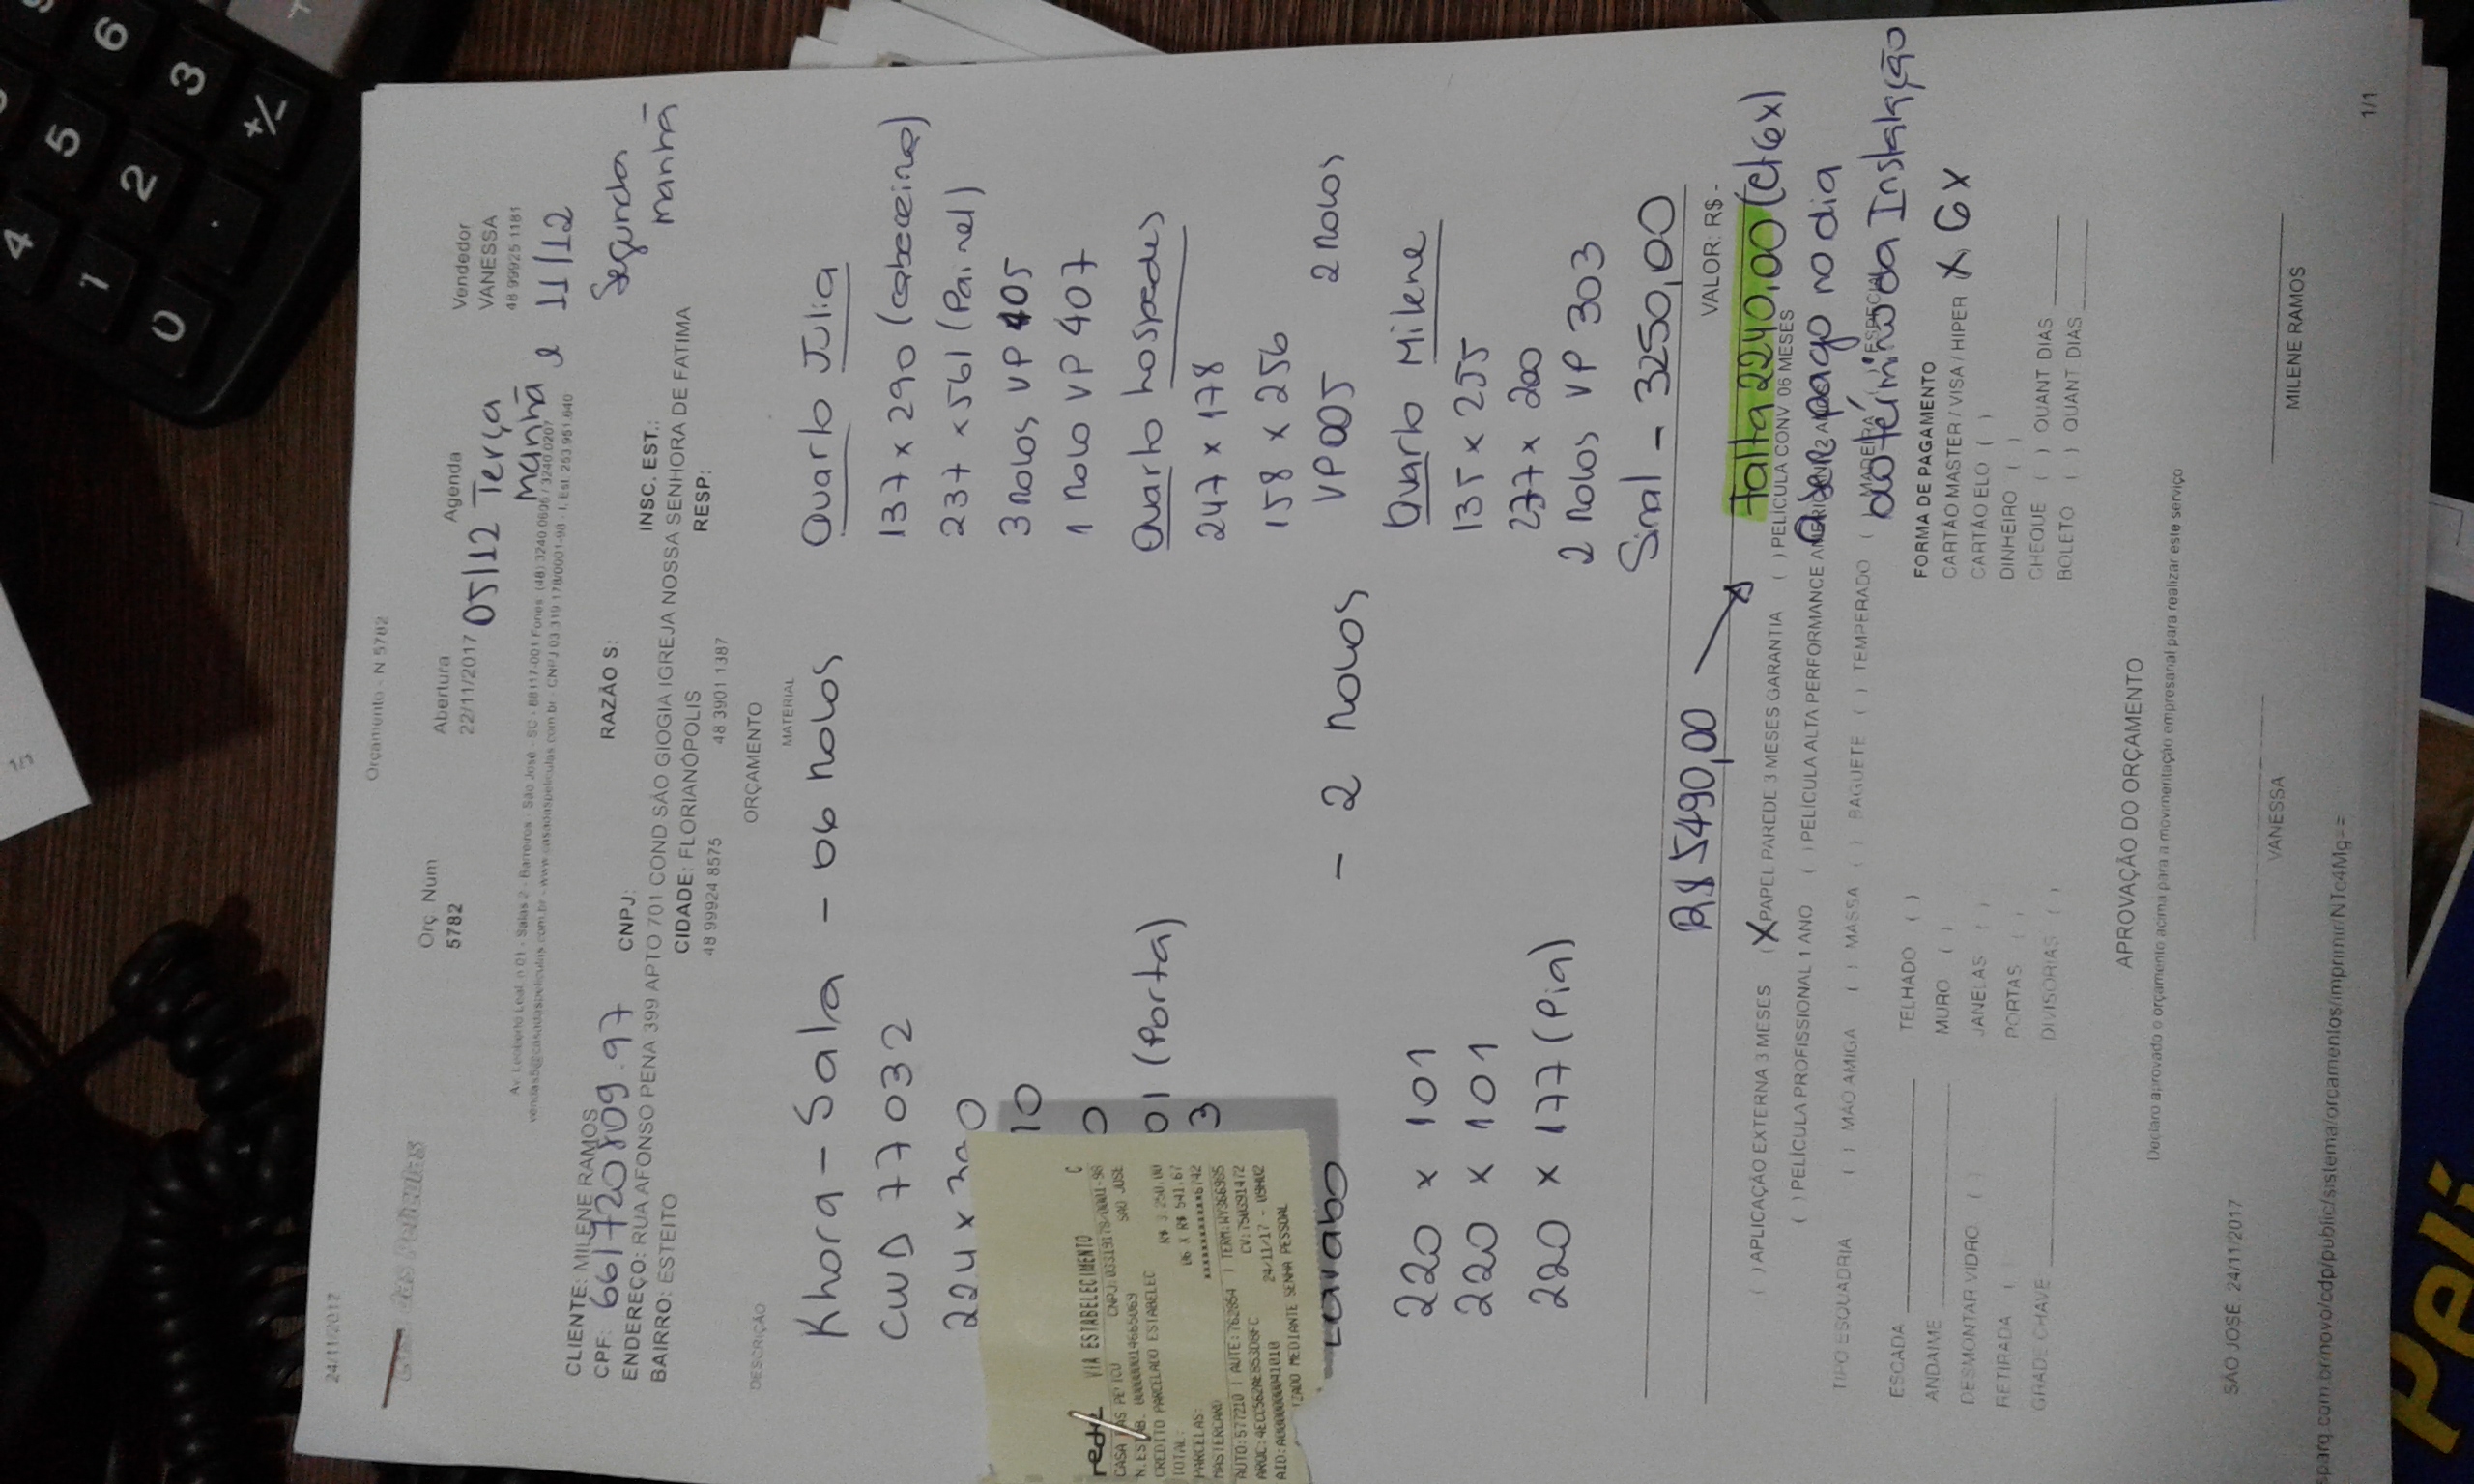 24/11/2017
Orçamento - N 5782
Orç Num
5782
Abertura
22/11/2017
Agenda
05/12 Terça
manhã e 11/12
Segunda
manhã
Vendedor
VANESSA
48 99925 1181
Av. Leoberto Leal, n 01 - Salas 2 - Barreiros - São José - SC - 88117-001 Fones: (48) 3240.0606 / 3240.0207
CLIENTE: MILENE RAMOS
RAZÃO S:
CPF: 661720809.97
CNPJ:
INSC. EST.:
ENDEREÇO: RUA AFONSO PENA 399 APTO 701 COND SÃO GIOGIA IGREJA NOSSA SENHORA DE FATIMA
BAIRRO: ESTEITO
CIDADE: FLORIANÓPOLIS
RESP:
48 99924 8575
48 3901 1387
ORÇAMENTO
DESCRIÇÃO
MATERIAL
Khora - Sala - 06 rolos
CWD 77032
224 x
10
01 (Porta)
3
Lavabo - 2 rolos
220 x 101
220 x 101
220 x 177 (Pia)
Quarto Julia
137 x 290 (cabeceira)
237 x 561 (Painel)
3 rolos VP 405
1 rolo VP 407
Quarto hospedes
247 x 178
158 x 256
VP005 2 rolos
Quarto Milene
135 x 255
277 x 200
2 rolos VP 303
Sinal - 3250,00
rede
VIA ESTABELECIMENTO
CNPJ:03319178/0001-98
SAO JOSE
CREDITO PARCELADO ESTABELEC
TOTAL: R$ 3.250,00
PARCELAS: 06 X R$ 541,67
MASTERCARD
AUTO:577210
24/11/17 - 09H02
MEDIANTE SENHA PESSOAL
R$ 5490,00
VALOR: R$ -
Falta 2240,00 (ct 6x)
a ser pago no dia
do término da Instalação
( ) APLICAÇÃO EXTERNA 3 MESES (X PAPEL PAREDE 3 MESES GARANTIA ( ) PELÍCULA CONV 06 MESES
( ) PELÍCULA PROFISSIONAL 1 ANO ( ) PELÍCULA ALTA PERFORMANCE
TIPO ESQUADRIA ( ) MÃO AMIGA ( ) MASSA ( ) BAGUETE ( ) TEMPERADO ( MADEIRA
ESCADA
TELHADO ( )
FORMA DE PAGAMENTO
ANDAIME
MURO ( )
CARTÃO MASTER / VISA / HIPER X 6X
DESMONTAR VIDRO ( )
JANELAS ( )
CARTÃO ELO ( )
RETIRADA ( )
PORTAS ( )
DINHEIRO ( )
GRADE CHAVE
DIVISORIAS ( )
CHEQUE ( ) QUANT DIAS
BOLETO ( ) QUANT DIAS
APROVAÇÃO DO ORÇAMENTO
Declaro aprovado o orçamento acima para a movimentação empresarial para realizar este serviço
SÃO JOSÉ, 24/11/2017
VANESSA
MILENE RAMOS
parq.com.br/novo/cdp/public/sistema/orcamentos/imprimir/NTc4Mg==
1/1
6
3
+/-
5
2
.
4
1
0
Pelí